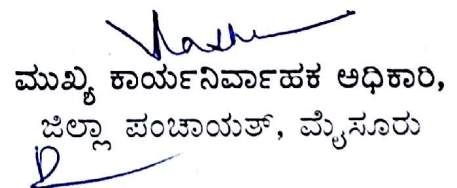 ಮುಖ್ಯ ಕಾರ್ಯನಿರ್ವಾಹಕ ಅಧಿಕಾರಿ,
ಜಿಲ್ಲಾ ಪಂಚಾಯತ್, ಮೈಸೂರು